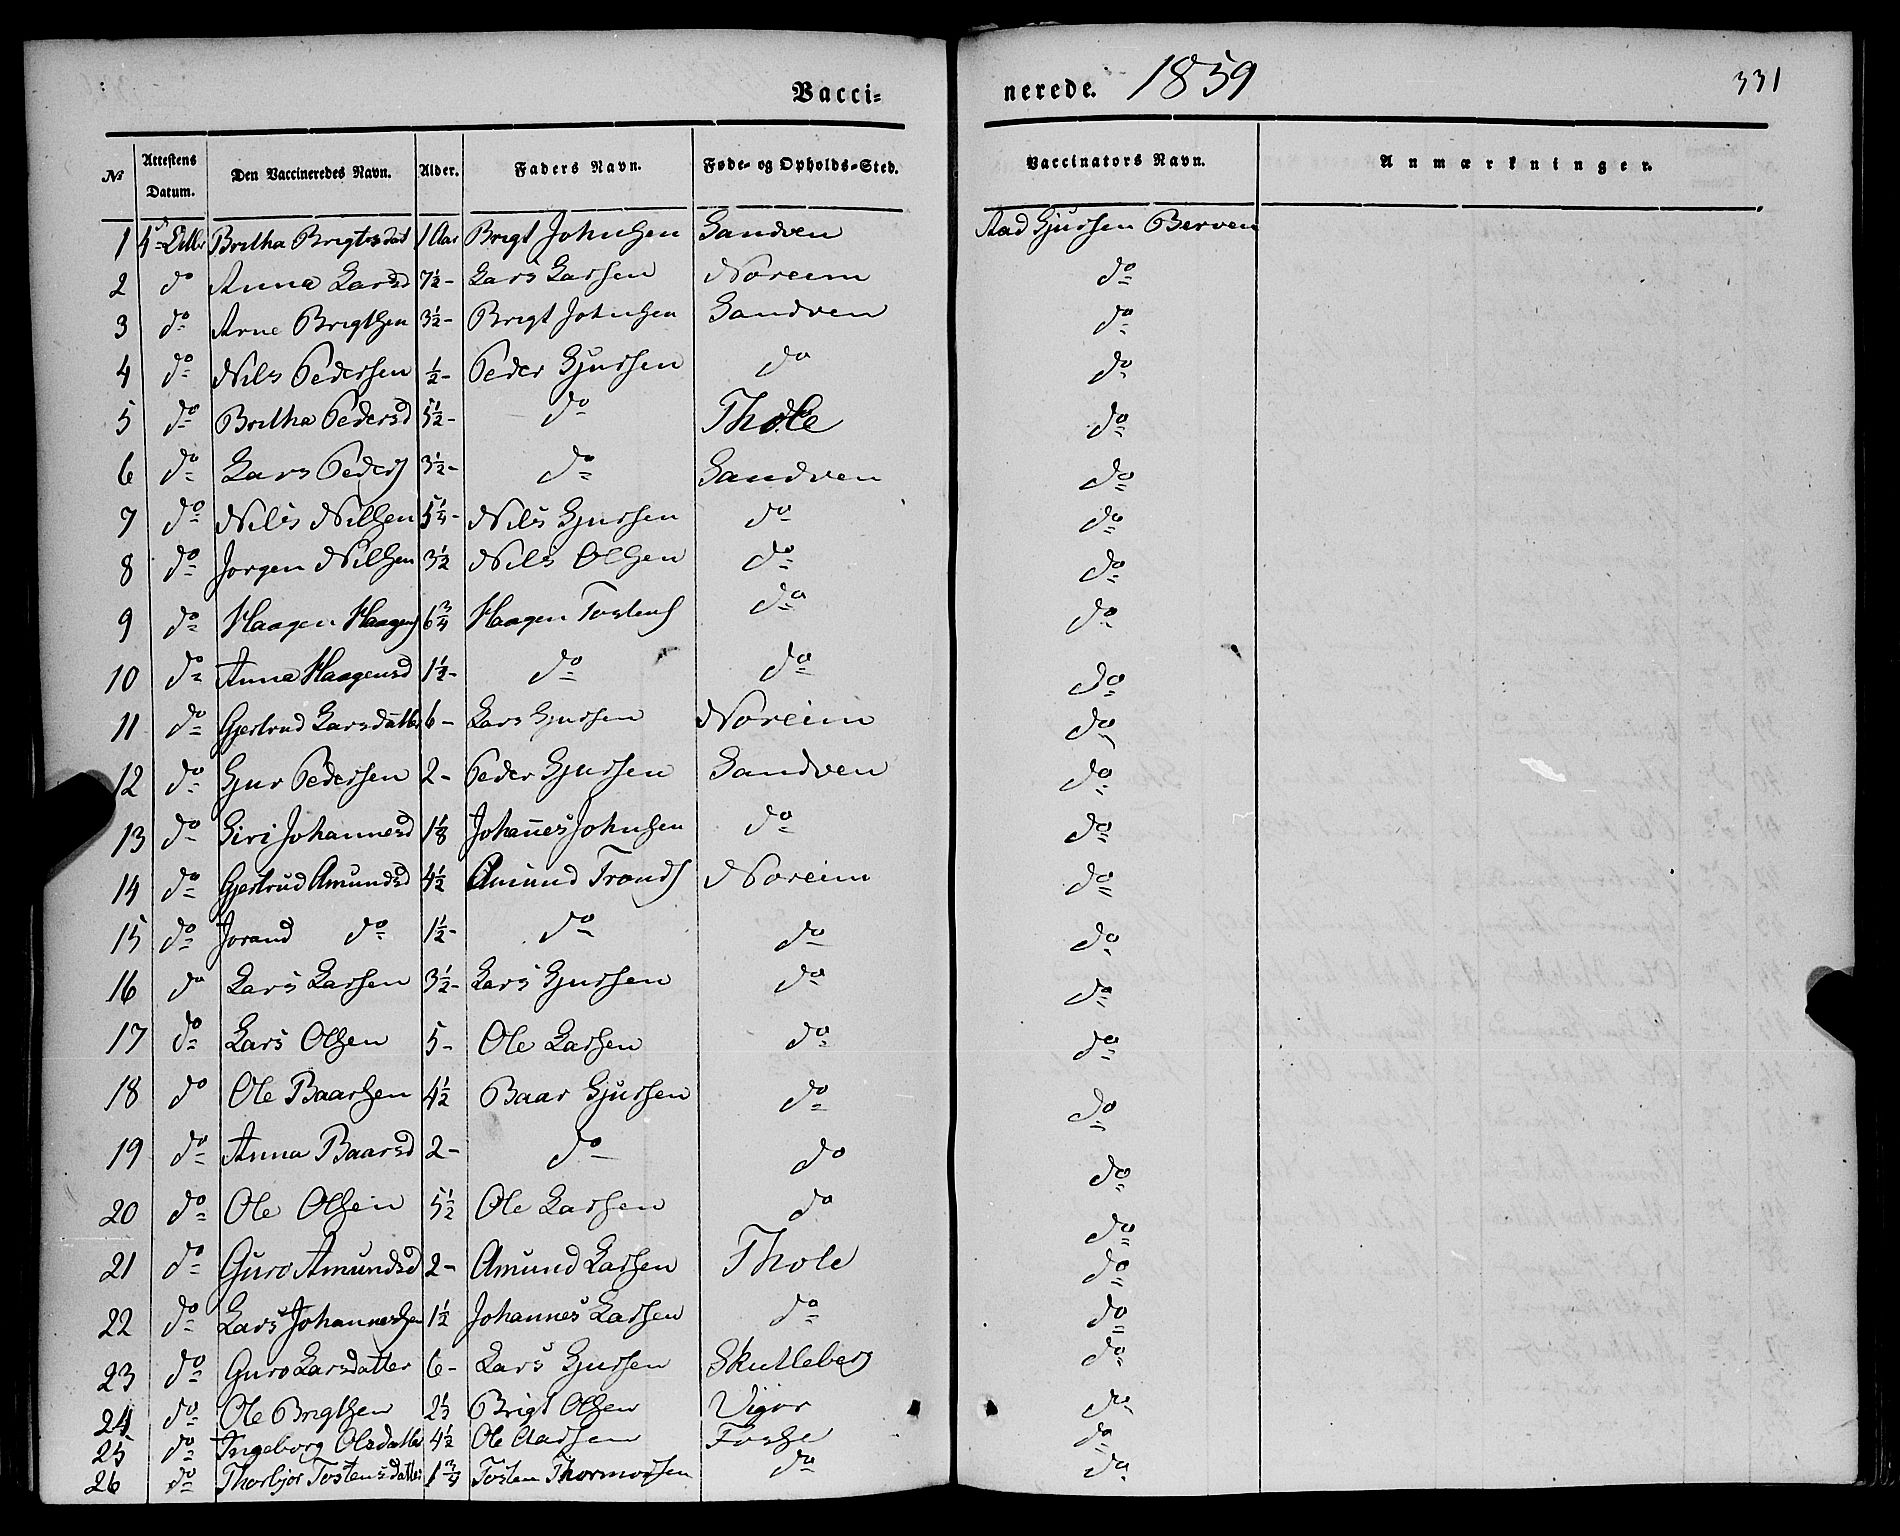 Vacci= nerede. 1859 331
No Attestens Datum. Den Vaccineredes Navn. Alder. Faders Navn. Føde- og Opholds-Sted. Vaccinators Navn. Anmærkninger.
1 Britha Brigtesdat 1 Aar Brigt Johnsen Sandven Aad Gjursen Berven
2 do Anna Larsd 7½- Lars Larsen Noreim do
3 do Arne Brigtsen 3½- Brigt Johnsen Sandven do
4 do Nils Pedersen ½- Peder Gjursen do do
5 do Britha Pedersd 5½- do Thole do
6 do Lars Peders 3½- do Sandven do
7 do Nils Nilsen 5¼- Nils Gjursen do do
8 do Jorgen Nilsen 3½ Nils Olsen do do
9 do Haagen Haagens 6¾ Haagen Tostens do do
10 do Anna Haagensd 1½- do do do
11 do Gjertrud Larsdatter 6- Lars Gjursen Noreim do
12 do Gjur Pedersen 2- Peder Gjursen Sandven do
13 do Siri Johannesd 1⅛ Johañes Johnsen do do
14 do Gjertrud Amundsd 4½ Amund Tronds Noreim do
15 do Jorand do 1½- do do do
16 do Lars Larsen 3½- Lars Gjursen do do
17 do Lars Olsen 5- Ole Larsen do do
18 do Ole Baarsen 4½ Baar Gjursen do do
19 do Anna Baarsd 2- do do do
20 do Ole Olsen 5½ Ole Larsen do do
21 do Guro Amundsd 2- Amund Larsen Thole do
22 do Lars Johannessen 1½ Johannes Larsen do do
23 do Guro Larsdatter 6- Lars Gjursen Skutleberg do
24 do Ole Brigtsen 2⅓ Brigt Olsen Vigør do
25 do Ingeborg Olsdatter 4½ Ole Aadsen Fosse do
26 do Thorbjor Tostensdatter 1¾ Tosten Thormodsen do do